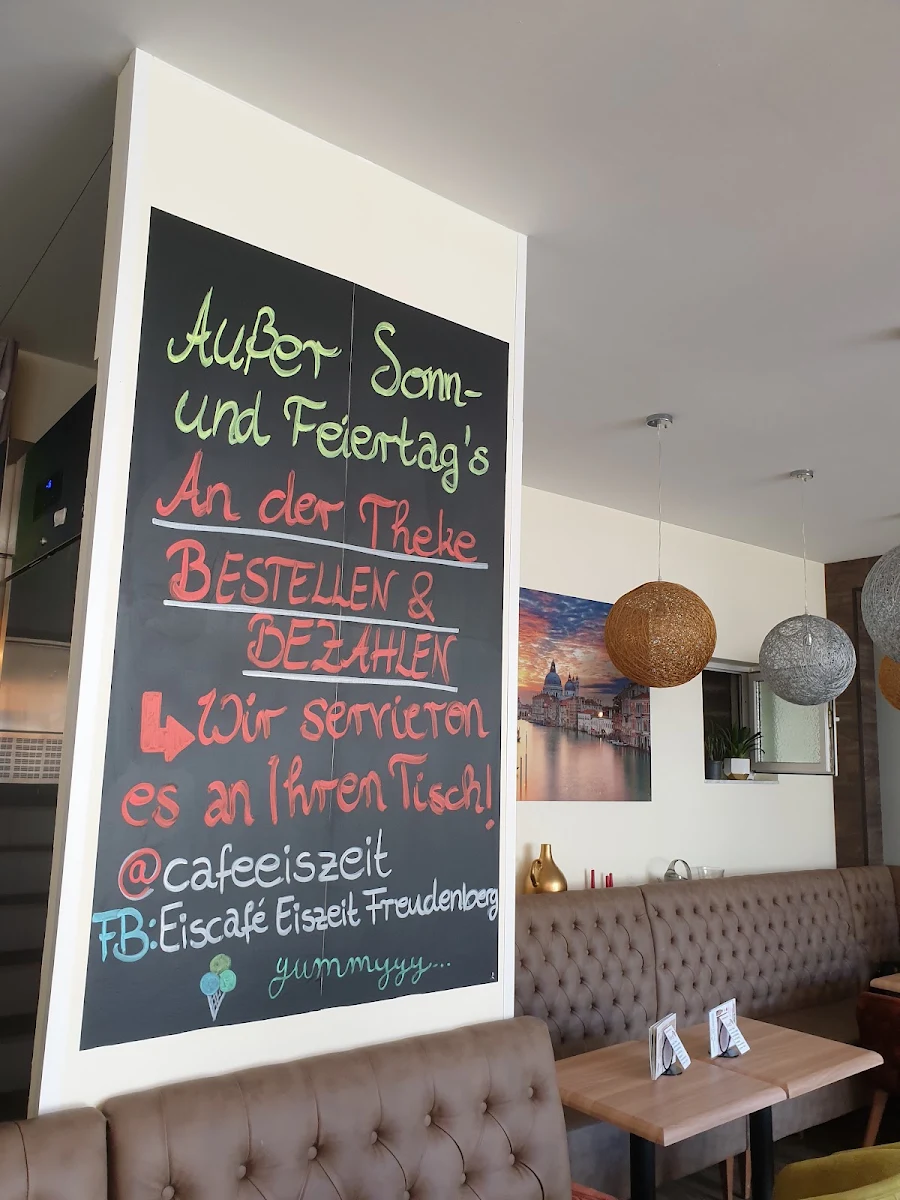 Außer Sonn-
und Feiertag's
An der Theke
BESTELLEN &
BEZAHLEN
Wir servieren
es an Ihren Tisch!
@cafeeiszeit
FB: Eiscafé Eiszeit Freudenberg
yummyyy...